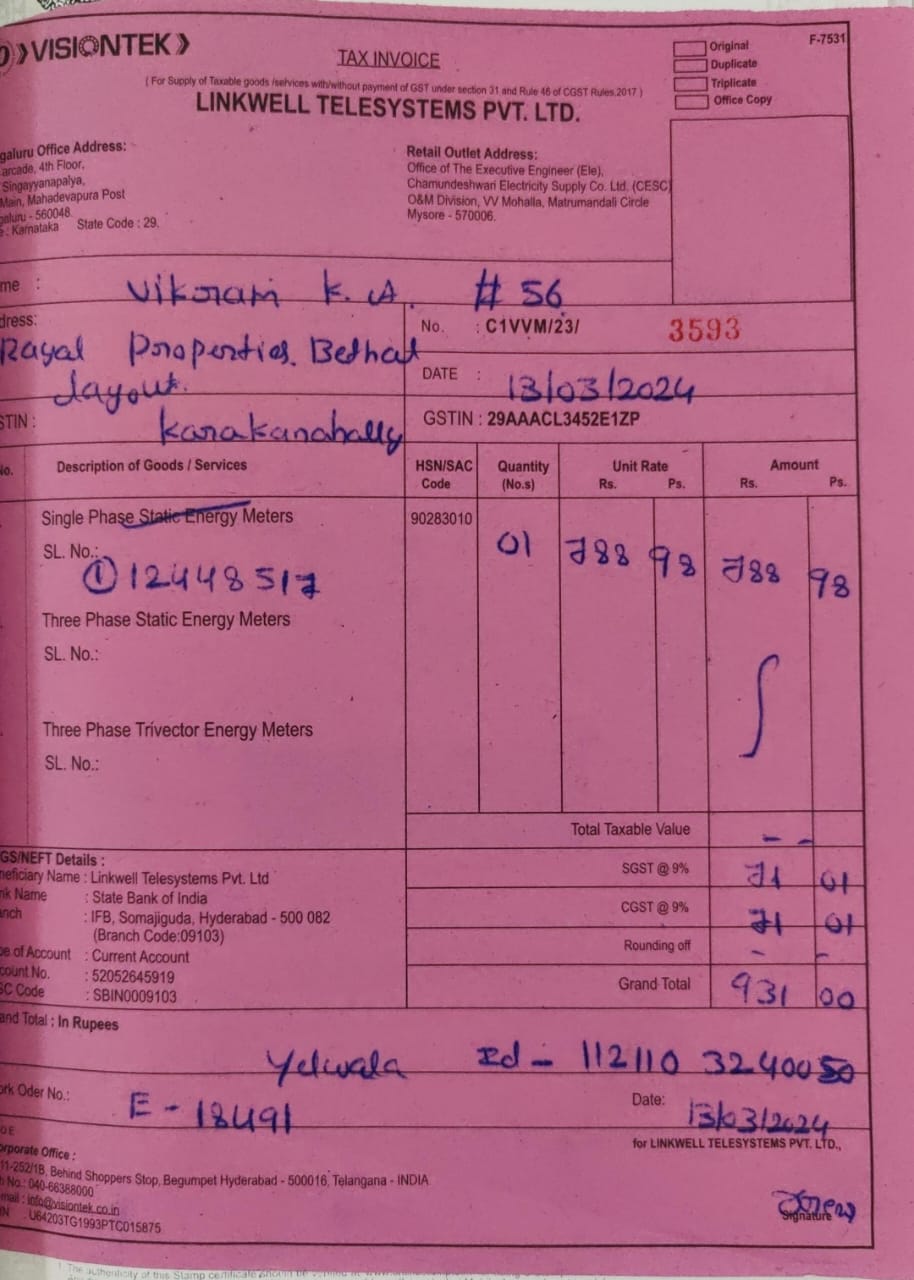 VISIONTEK
TAX INVOICE
F-7531
Original
Duplicate
Triplicate
Office Copy
( For Supply of Taxable goods /services with/without payment of GST under section 31 and Rule 46 of CGST Rules.2017 )
LINKWELL TELESYSTEMS PVT. LTD.
galuru Office Address:
arcade, 4th Floor,
Singayyanapalya,
Main, Mahadevapura Post
galuru - 560048.
e : Karnataka State Code : 29.
Retail Outlet Address:
Office of The Executive Engineer (Ele),
Chamundeshwari Electricity Supply Co. Ltd. (CESC)
O&M Division, VV Mohalla, Matrumandali Circle
Mysore - 570006.
me : Vikram K. A. # 56
dress:
Rayal Properties. Bethal
layout.
No. : C1VVM/23/ 3593
DATE : 13/03/2024
STIN : karakanahally
GSTIN : 29AAACL3452E1ZP
No. Description of Goods / Services HSN/SAC Code Quantity (No.s) Unit Rate Rs. Ps. Amount Rs. Ps.
Single Phase Static Energy Meters 90283010 01 788 98 788 98
SL. No.:
① 12448517
Three Phase Static Energy Meters
SL. No.:
Three Phase Trivector Energy Meters
SL. No.:
Total Taxable Value - -
SGST @ 9% 71 01
CGST @ 9% 71 01
Rounding off - -
Grand Total 931 00
GS/NEFT Details :
neficiary Name : Linkwell Telesystems Pvt. Ltd
nk Name : State Bank of India
anch : IFB, Somajiguda, Hyderabad - 500 082
(Branch Code:09103)
pe of Account : Current Account
count No. : 52052645919
SC Code : SBIN0009103
and Total : In Rupees
Yelwala Id - 112110 3240050
ork Oder No.: E - 18491
Date: 13/03/2024
for LINKWELL TELESYSTEMS PVT. LTD.,
orporate Office :
11-252/1B, Behind Shoppers Stop, Begumpet Hyderabad - 500016, Telangana - INDIA
h No.: 040-66388000
mail : info@visiontek.co.in
IN U64203TG1993PTC015875
Signature